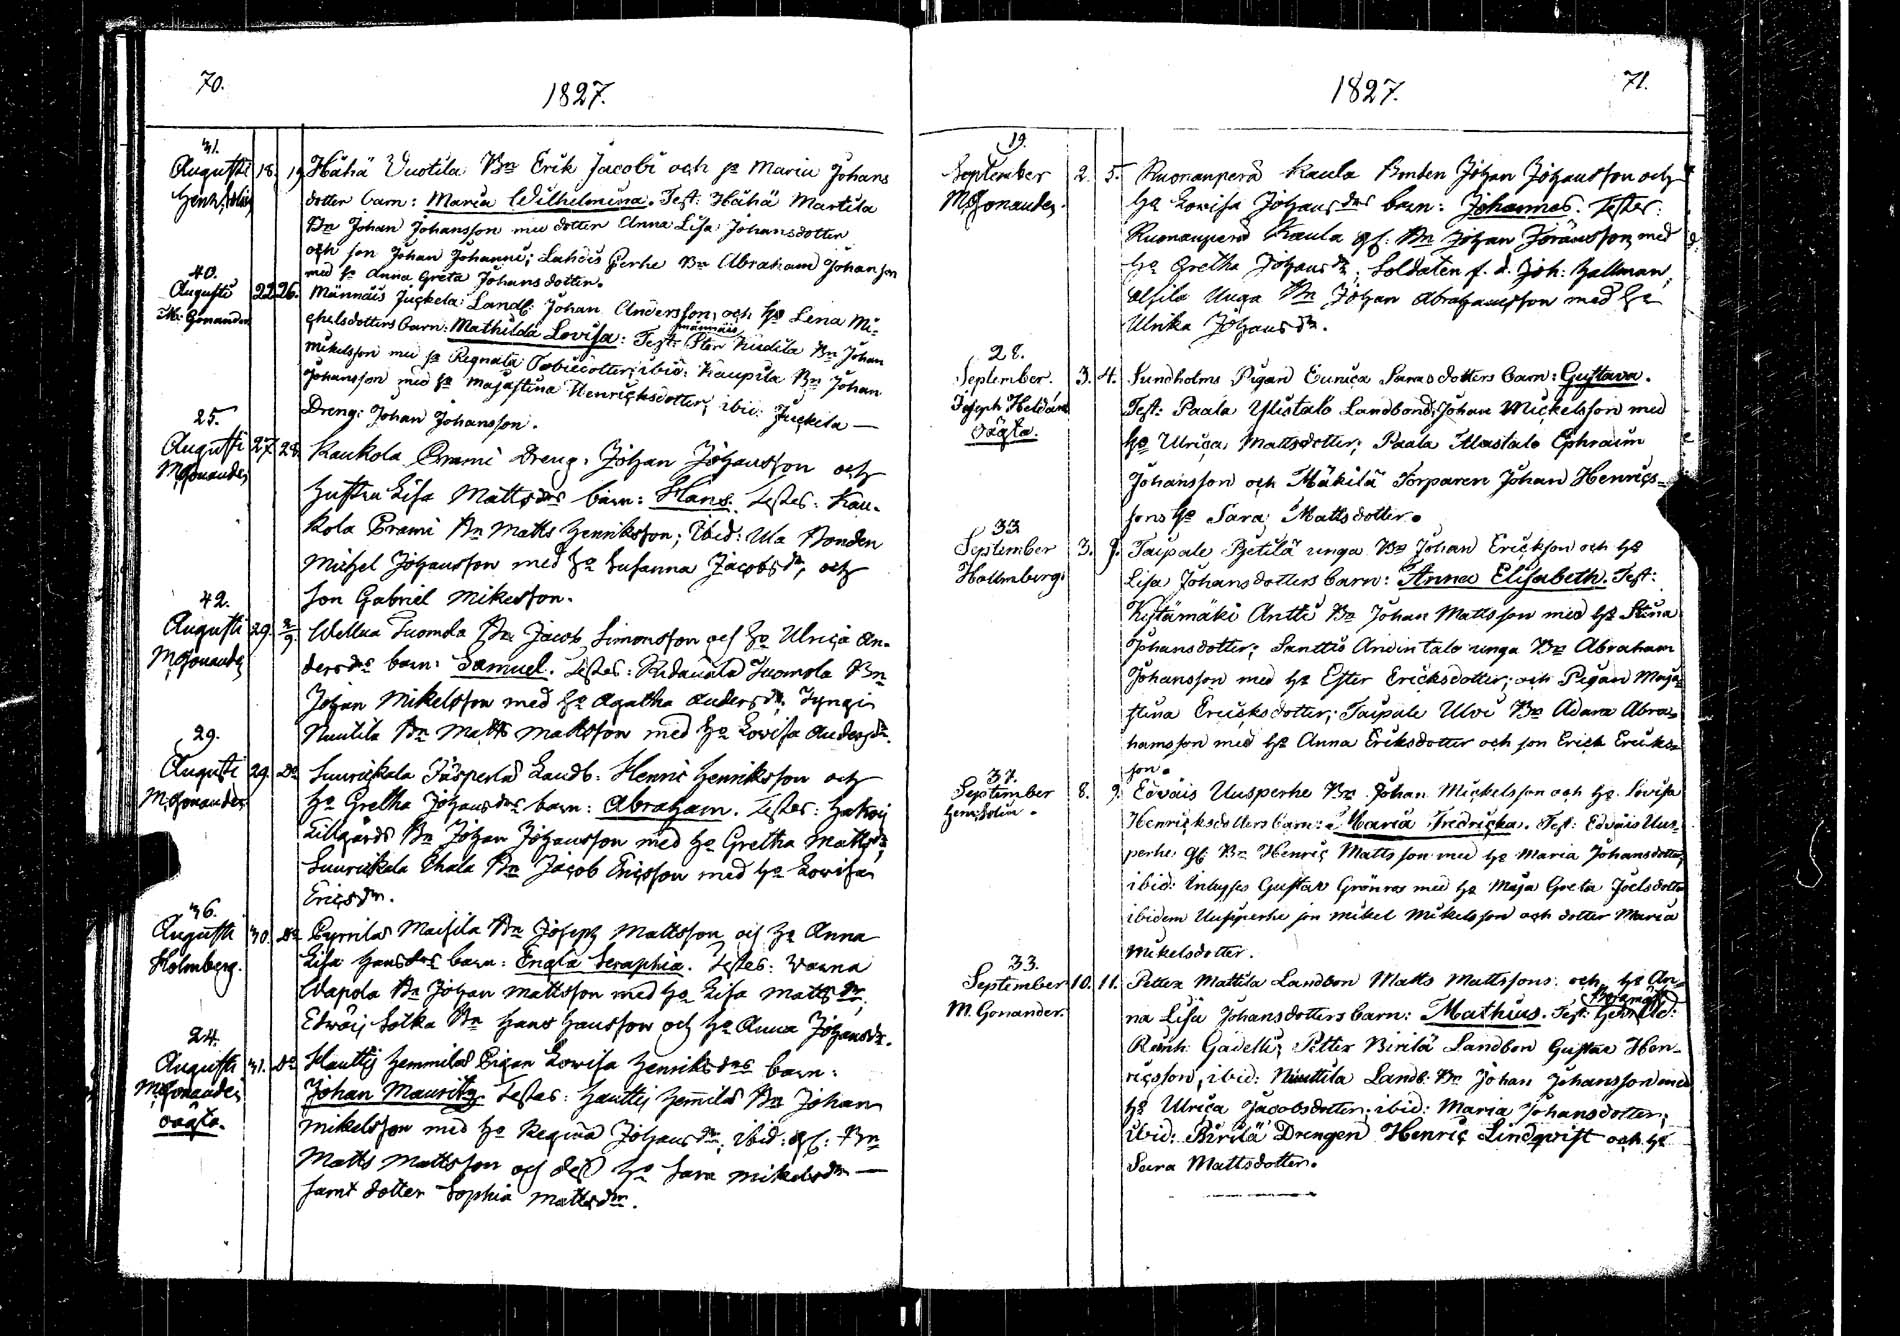 70.
1827.
31.
Augusti 18. 19
Hähä Vuotila Bn Erik Jacobi och hu Maria Johans
dotter barn: Maria Wilhelmina. Test: Hähä Martila
Bn Johan Johansson med dotter Anna Lisa Johansdotter
och son Johan Johanni; Lahdis Perhe Bn Abraham Johansson
med hu Anna Greta Johansdotter.
40.
Augusti 22 26.
M. Gonander
Männäis Juckela Landb: Johan Andersson, och Hu Lena Mi-
chelsdotters barn: Mathilda Lovisa: Test: männäis Pter Kiudila Bn Johan
Mikelsson med hu Regnata Tobiedotter; ibid: Kaupila Bn Johan
Johansson med hu Majastina Henricksdotter; ibid: Juckela —
Dreng: Johan Johansson.
25.
Augusti 27. 28.
M. Gonander
Kaukola Prami Dreng: Johan Johansson och
hustru Lisa Mattsdrs barn: Hans. Testes: Kau-
kola Prami Bn Matts Henriksson; Ibid: Ula Bonden
Michel Johansson med hu Susanna Jacobsdr, och
son Gabriel Mikelsson.
42.
Augusti 29. 2/9
M. Gonander
Wellua Tuomola Bn Jacob Simonsson och hu Ulrica An-
dersdrs barn: Samuel. Testes: Tuomola Bn
Johan Mikelsson med hu Agatha Andersdr;
Nuutila Bn Matts Mattsson med hu Lovisa Andersdr.
29.
Augusti 29. Do
M. Gonander
Suurickala Jäsperlas Landb: Henric Henriksson och
hu Gretha Johansdrs barn: Abraham. Testes:
Lillgårds Bn Johan Johansson med hu Gretha Mattsdr;
Suurickala Ehala Bn Jacob Ericsson med hu Lovisa
Ericsdr.
36.
Augusti 30. Do
Holmberg.
Pyrrilas Maisila Bn Joseph Mattsson och hu Anna
Lisa Hansdrs barn: Engla Seraphia. Testes:
Wapola Bn Johan Mattsson med hu Lisa Mattsdr;
Sotka Bn Hans Hansson och hu Anna Johansdr.
24.
Augusti 31. Do
M. Gonander
oägta.
Hauttij Hemmilas Pigan Lovisa Henriksdrs barn:
Johan Mauritz. Testes: Hauttij Hemmilas Bn Johan
Mikelsson med hu Regina Johansdr; ibid: gf: Bn
Matts Mattsson och dess hu Sara Mikelsdr —
samt dotter Sophia Mattsdr.
1827.
71.
19.
September 2. 5.
M. Gonander.
Ruonanperä Kaula Bonden Johan Johansson och
hu Lovisa Johansdrs barn: Johannes. Testes:
Ruonanperä Kaula gf: Bn Johan Göransson med
hu Gretha Johansdr; Soldaten f. d. Joh: Hallman,
Alsila Unga Bn Johan Abrahamsson med hu
Ulrika Johansdr.
28.
September. 3. 4.
Joseph Heldán
oägta.
Sundholms Pigan Eunica Sarasdotters barn: Gustava.
Test: Paala Ylistalo Landbond. Johan Mickelsson med
hu Ulrica Mattsdotter; Paala Alastalo Ephraim
Johansson och Mäkilä Torparen Johan Henrics-
sons hu Sara Mattsdotter.
33
September 3. 9.
Hallmberg.
Taipale Pietilä unga Bn Johan Erickson och hu
Lisa Johansdotters barn: Anna Elisabeth. Test:
Kistämäki Antti Bn Johan Mattsson med hu Stina
Johansdotter; Santtis talo unga Bn Abraham
Johansson med hu Ester Ericksdotter; och Pigan Maja-
stina Ericksdotter; Taipale Ulvi Bn Adam Abra-
hamsson med hu Anna Eriksdotter och son Erick Ericks-
son.
37.
September 8. 9.
Edväis Uusperhe Bn Johan Mickelsson och hu Lovisa
Henricksdotters barn: Maria Fredricka. Test: Edväis Uus-
perhe gf. Bn Henric Mattsson med hu Maria Johansdotter;
ibid: Inhyses Gustav Grönros med hu Maja Greta Joelsdotter
ibidem Uusperhe son Mikel Mikelsson och dotter Maria
Mikelsdotter.
33.
September 10. 11.
M. Gonander.
Petter Mattila Landbon Matts Mattssons och hu An-
na Lisa Johansdotters barn: Mathias. Test:
Gadelli; Petter Birilä Landbon Gustav Hen-
ricsson, ibid: Niuttila Landb: Bn Johan Johansson med
hu Ulrica Jacobsdotter; ibid: Maria Johansdotter;
ibid: Birilä Drengen Henric Lindqvist och hu
Sara Mattsdotter.